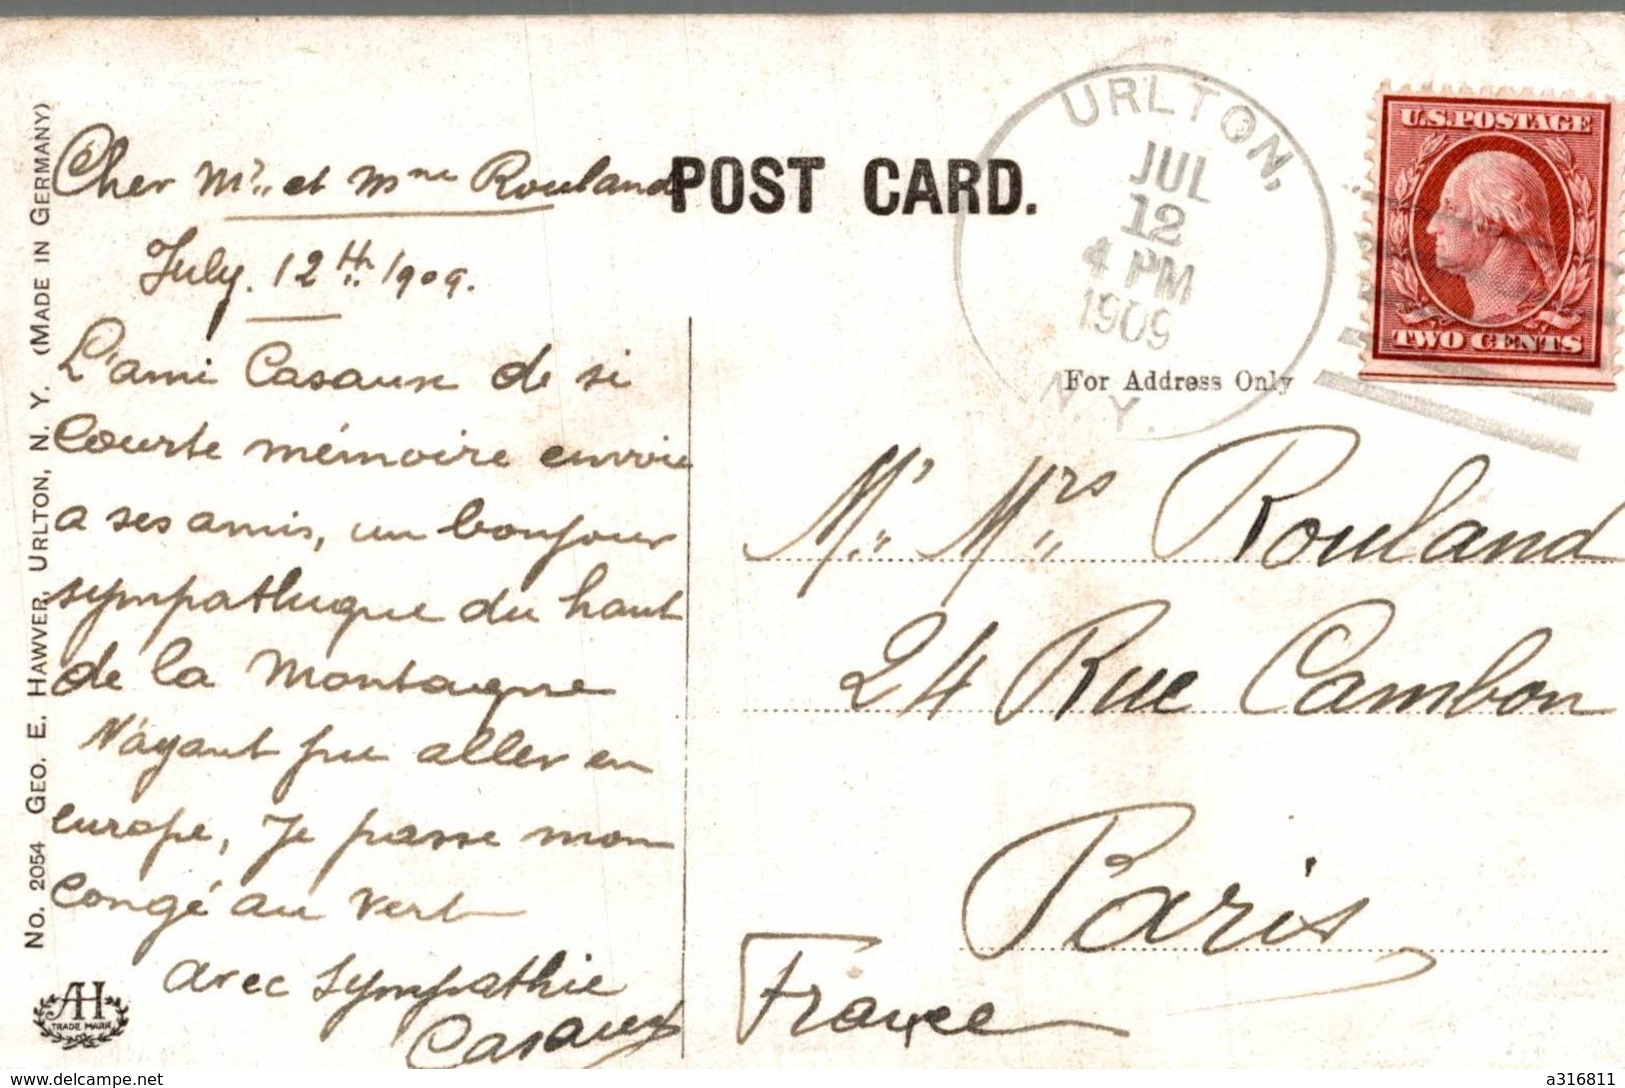 Cher Mr. et Mme Rouland
July. 12th 1909.
L'ami Casaux de si
Courte mémoire envoie
a ses amis, un bonjour
sympathique du haut
de la Montagne
N'ayant pu aller en
europe, Je passe mon
Congé au vert
avec sympathie
Casaux
POST CARD.
URLTON,
JUL
12
4 PM
1909
N.Y.
U.S. POSTAGE
TWO CENTS
For Address Only
Mr. Mrs Rouland
24 Rue Cambon
Paris
France
No. 2054 GEO. E. HAWVER, URLTON, N. Y. (MADE IN GERMANY)
AH
TRADE MARK
www.delcampe.net
a316811